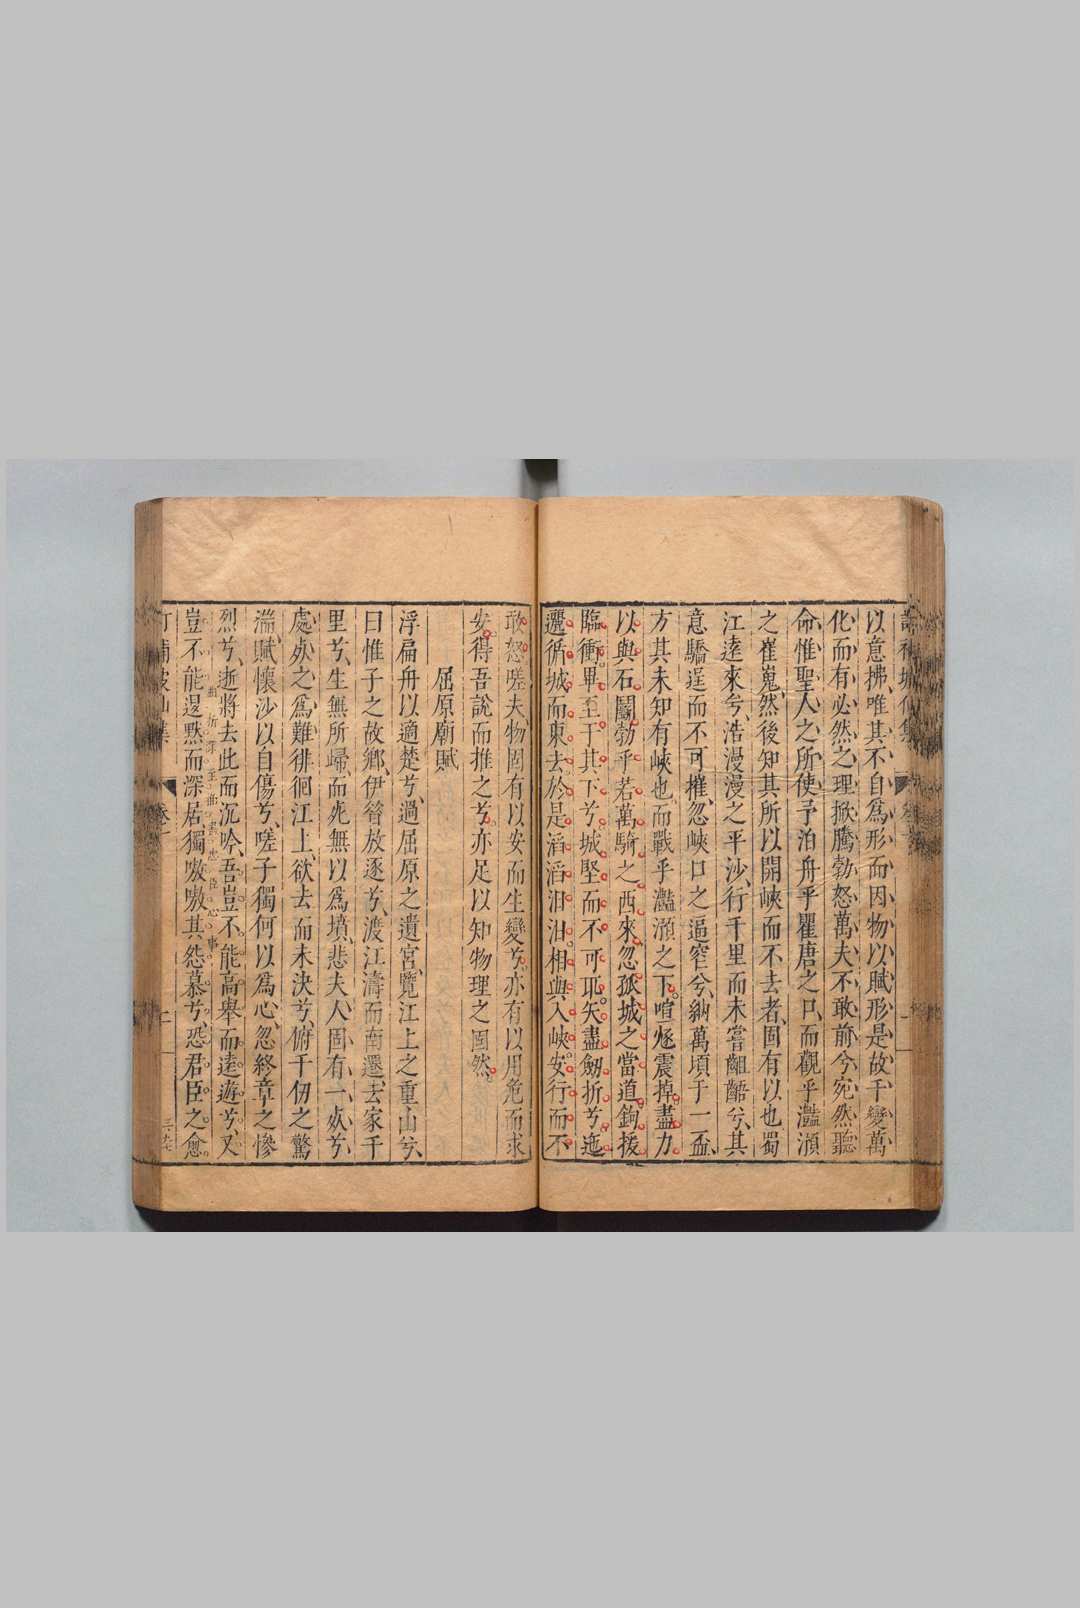 以意拂唯其不自爲形而因物以賦形是故千變萬
化而有必然之理掀騰勃怒萬夫不敢前兮宛然聽
命惟聖人之所使予泊舟乎瞿唐之口而觀乎灩澦
之崔嵬然後知其所以開峽而不去者固有以也蜀
江遠來兮浩漫漫之平沙行千里而未嘗齟齬兮其
意驕逞而不可摧忽峽口之逼窄兮納萬頃于一盃
方其未知有峽也而戰乎灩澦之下喧豗震掉盡力
以與石鬭勃乎若萬騎之西來忽孤城之當道鉤援
臨衝畢至于其下兮城堅而不可取矢盡劒折兮迤
邐循城而東去於是滔滔汩汩相與入峽安行而不
敢怒嗟夫物固有以安而生變兮亦有以用危而求
安得吾說而推之兮亦足以知物理之固然
屈原廟賦
浮扁舟以適楚兮過屈原之遺宮覽江上之重山兮
曰惟子之故鄉伊昔放逐兮渡江濤而南遷去家千
里兮生無所歸而死無以爲墳悲夫人固有一死兮
處死之爲難徘徊江上欲去而未決兮俯千仞之驚
湍賦懷沙以自傷兮嗟子獨何以爲心忽終章之慘
烈兮逝將去此而沉吟吾豈不能高舉而遠遊兮又
豈不能退默而深居獨嗷嗷其怨慕兮恐君臣之愈
卷一
二